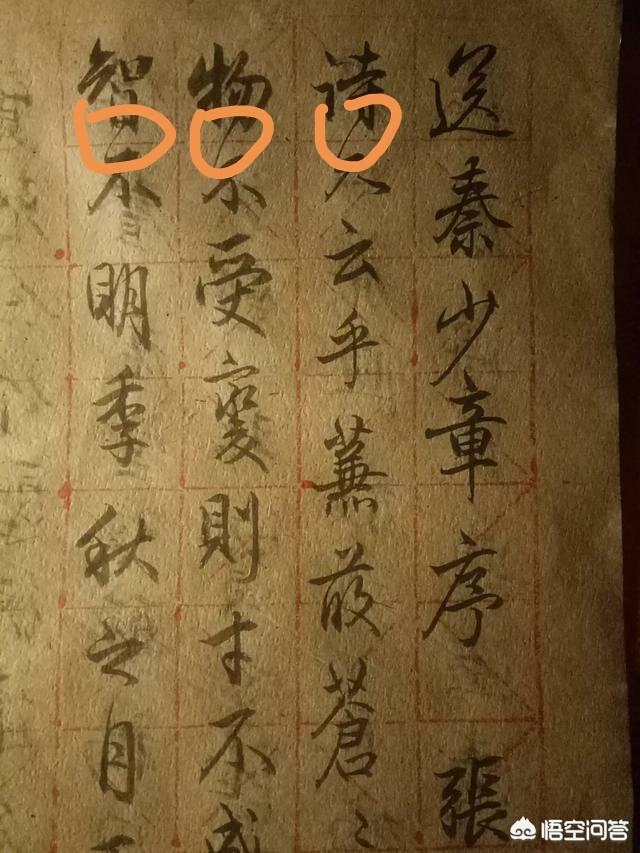 送秦少章序 張
詩不云乎蒹葭蒼〻
物不受變則才不成
智不明季秋之月
悟空问答